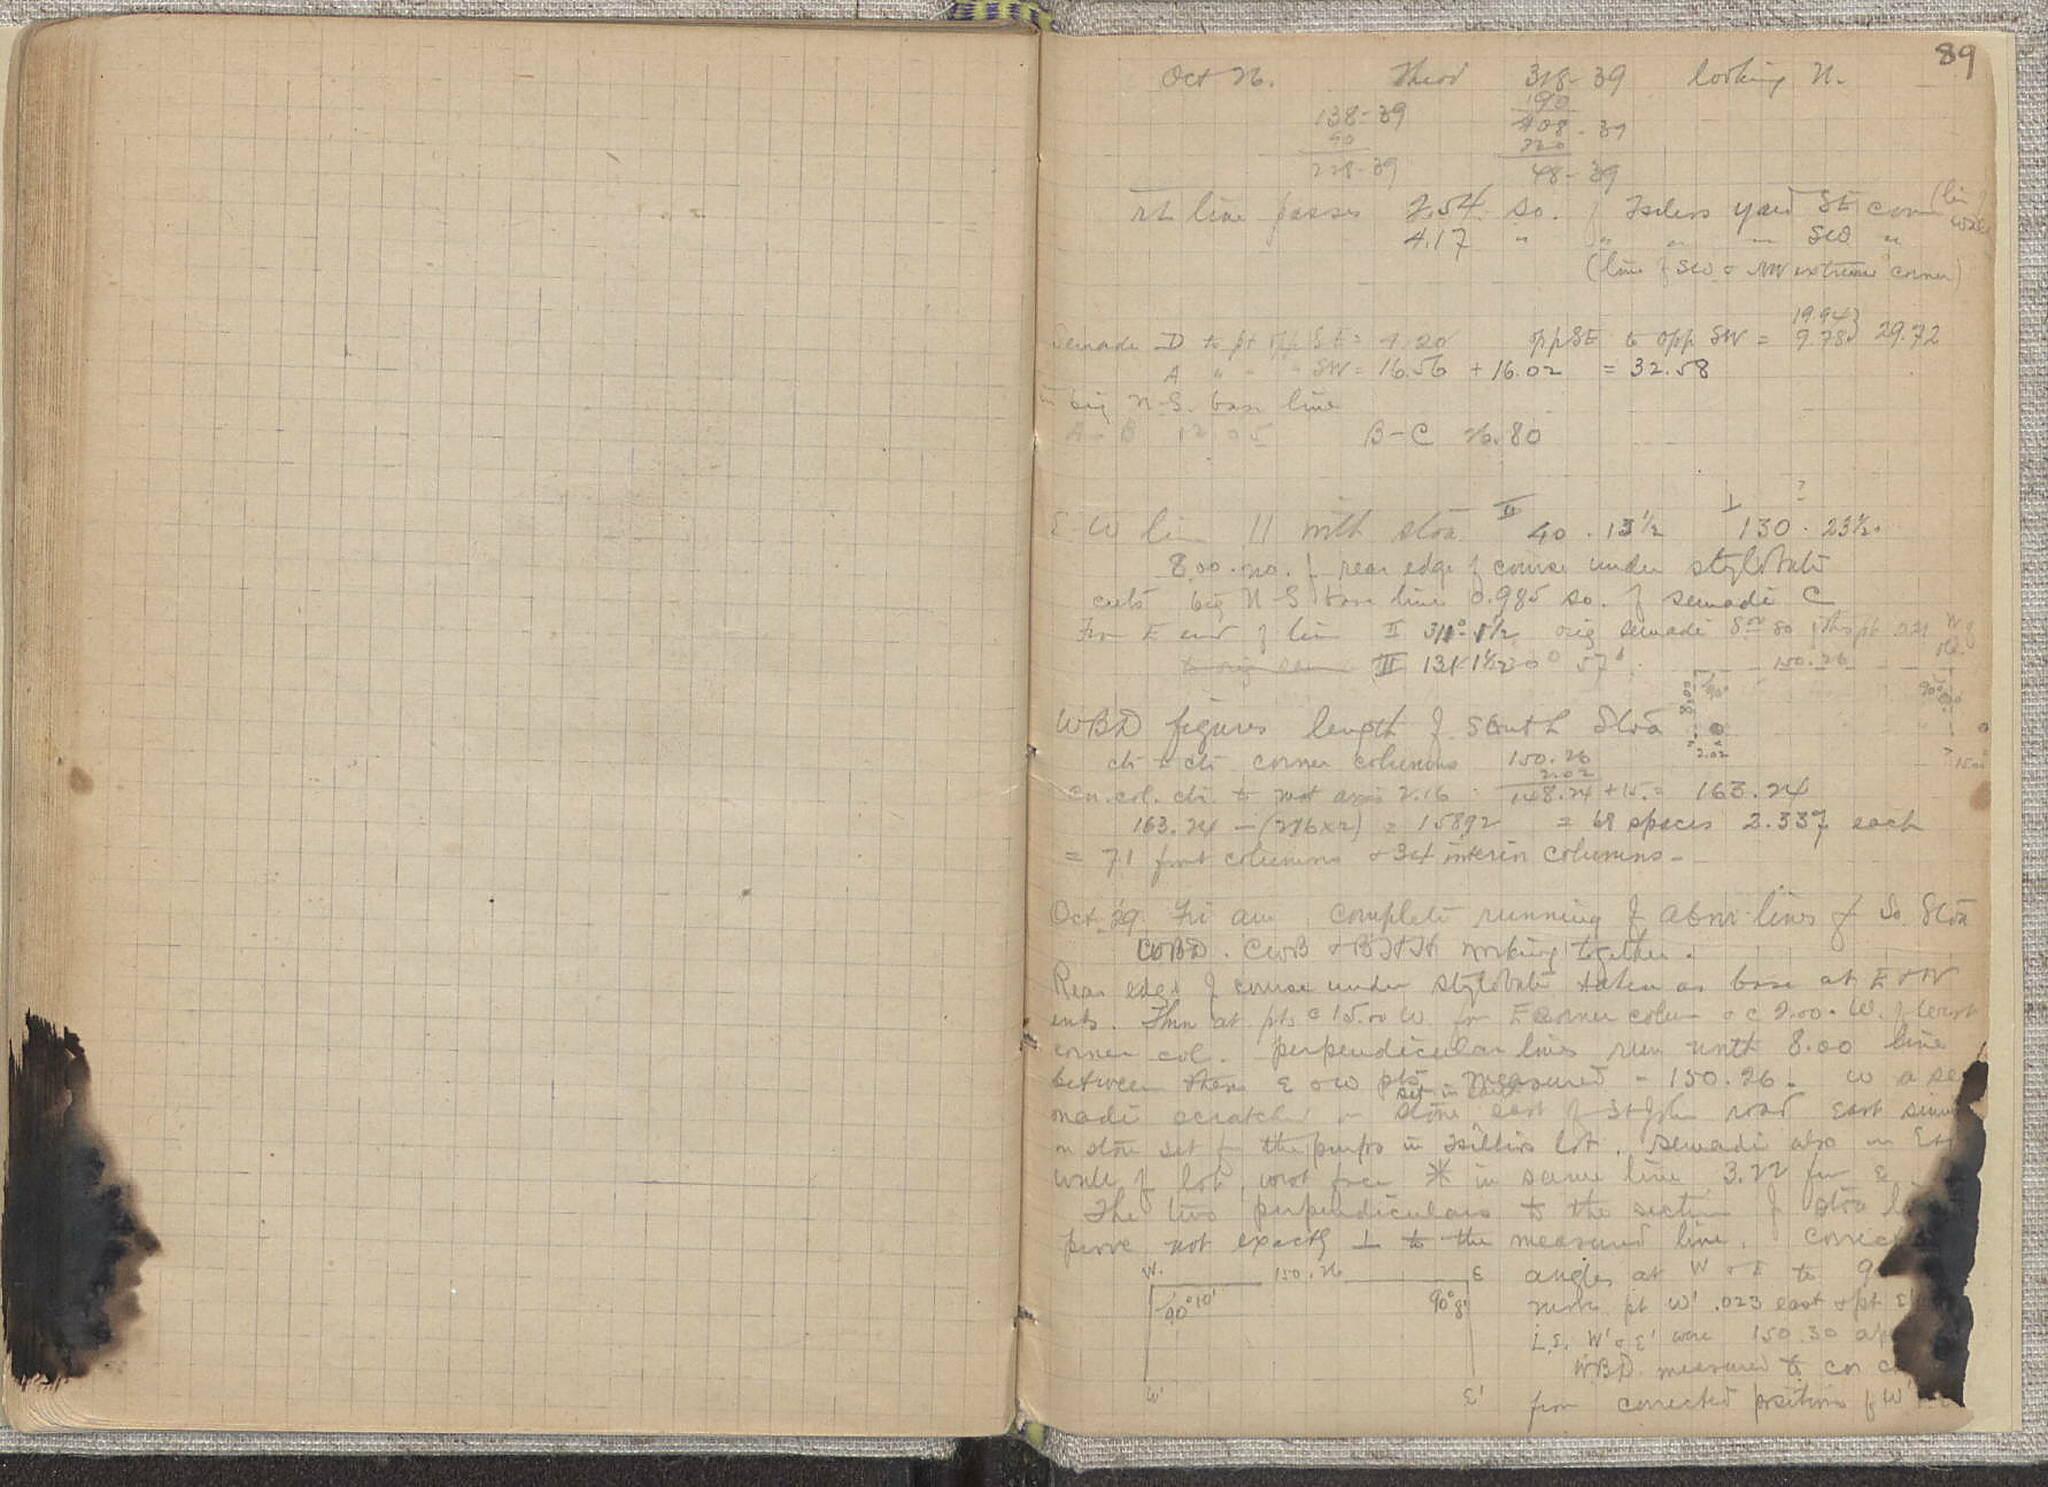 89
Oct 26. Theod 318-39 looking N.
90
138-39 408-39
90 360
228-39 48-39
rt line passes 2.54 so. of Tselios yard SE corner (line
4.17 " " " " SW "
(line of SW & NW extreme corner)
19.94
Semadi D to pt opp SE = 4.20 opp SE to opp SW = 9.78} 29.72
A " " " SW = 16.56 + 16.02 = 32.58
big N-S. base line
A-B 12.05 B-C 26.80
E-W line II with stoa II 40.13 1/2 ⊥ 130.23 1/2
8.00 no. of rear edge of course under stylobate
cuts big N-S base line 0.985 so. of semadi C
From E end of line II 311° 1 1/2 orig semadi
III 131-1 1/2 57'
150.26
90°
8.00
2.02
WBD figures length of South Stoa
ctr to ctr corner columns 150.26
2.02
cor. col. ctr. to next axis 2.16 148.24 + 15. = 163.24
163.24 - (216x2) = 15892 = 68 spaces 2.337 each
= 71 front columns & 34 interior columns -
Oct. 29 Fri am complete running of above lines of So. Stoa
WBD. CWB & BHH working together.
Rear edge of course under stylobate taken as base at E & W
ends. Then at pts c 15.00 W. from E corner column & c 2.00 W. of west
corner col. perpendicular lines run until 8.00 line
between these E & W pts measured - 150.26. W a se
set in east
madi scratched on stone east of St John road East simi
on stone set for the purpose in Tsellios lot. Semadi also in East
wall of lot, west face * in same line 3.22 from E
The two perpendiculars to the section of stoa li
prove not exactly ⊥ to the measured line. Correc
W. 150.26 E angles at W & E to 9
90°10' 90°8' makes pt W' .023 east & pt E'
i.e. W' & E' were 150.30 ap
WBD measured to cor c
W' E' from corrected positions of W'